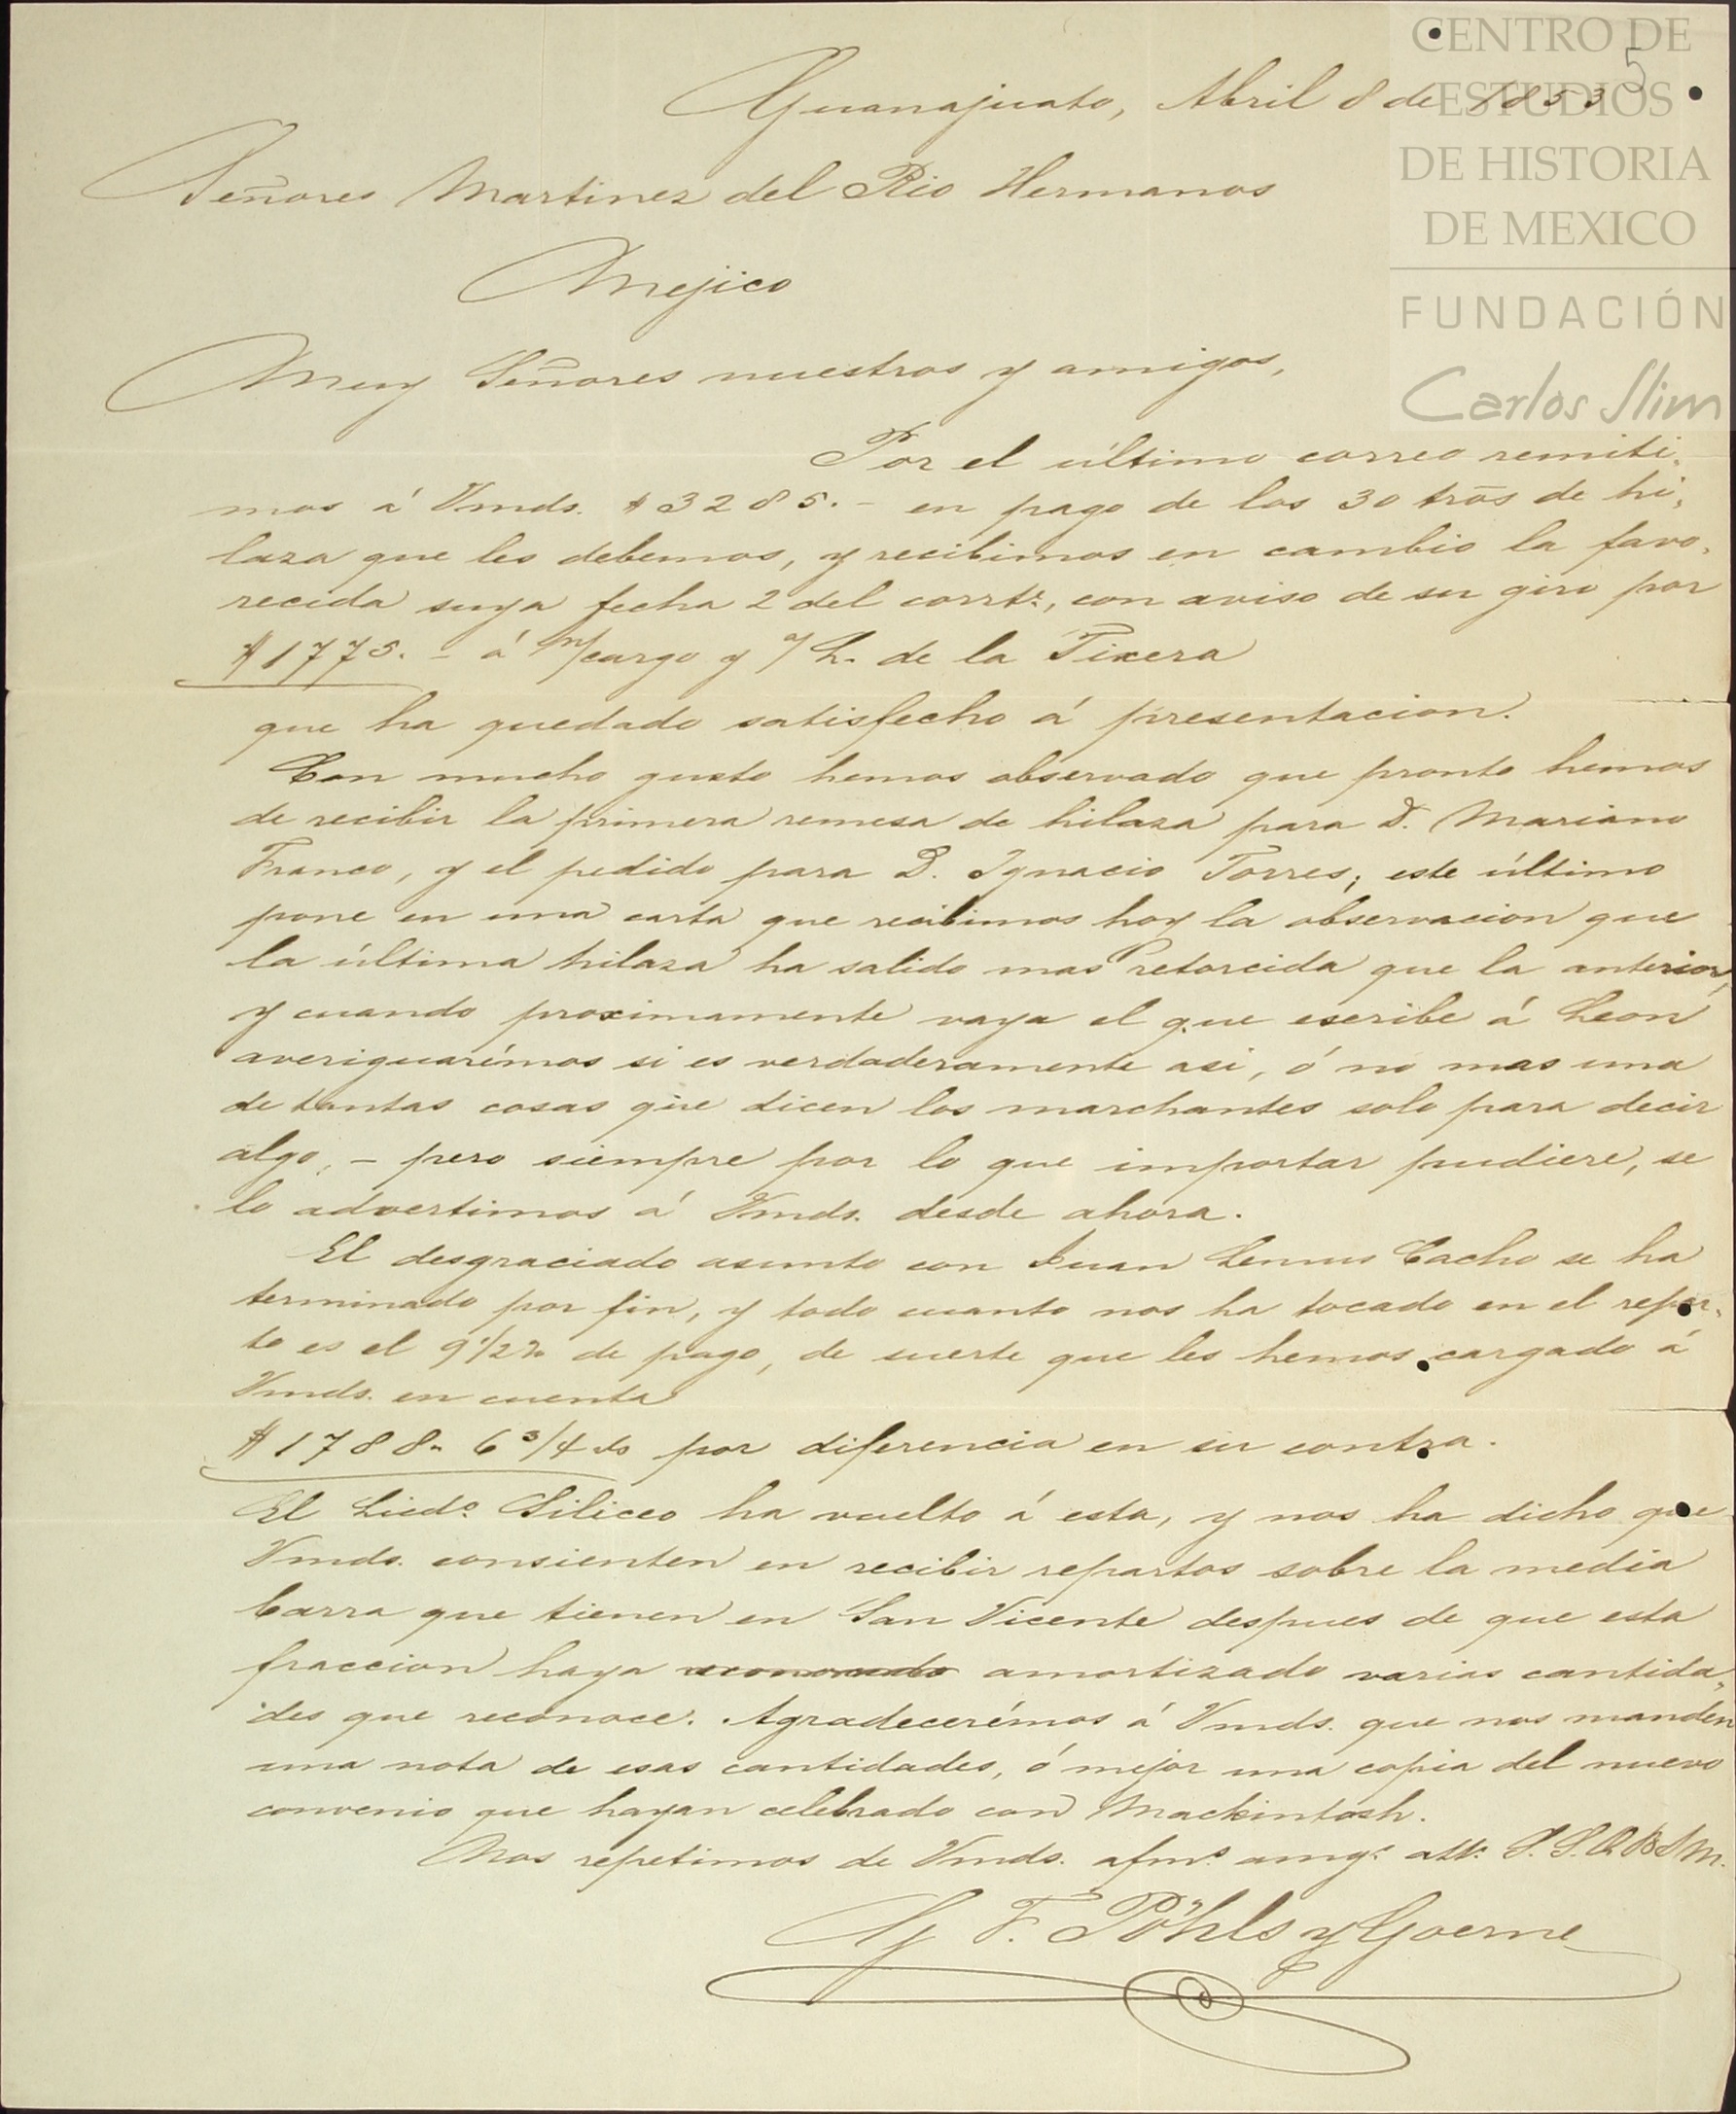 CENTRO DE
ESTUDIOS
DE HISTORIA
DE MEXICO
FUNDACIÓN
Carlos Slim
5
Guanajuato, Abril 8 de 1853
Señores Martinez del Rio Hermanos
Mejico
Muy Señores nuestros y amigos,
Por el último correo remiti,
mos á Vmds. $3285.- en pago de los 30 tros de hi,
laza que les debemos, y recibimos en cambio la favo,
recida suya fecha 2 del corrte., con aviso de su giro por
$1775. - á n/cargo y o/ L. de la Tixera
que ha quedado satisfecho á presentacion.
Con mucho gusto hemos observado que pronto hemos
de recibir la primera remesa de hilaza para D. Mariano
Franco, y el pedido para D. Ignacio Torres; este último
pone en una carta que recibimos hoy la observacion que
la última hilaza ha salido mas retorcida que la anterior,
y cuando proximamente vaya el que escribe á Leon
averiguarémos si es verdaderamente asi, ó no mas una
de tantas cosas que dicen los marchantes solo para decir
algo, - pero siempre por lo que importar pudiere, se
lo advertimos á Vmds. desde ahora.
El desgraciado asunto con Juan Lemus Cacho se ha
terminado por fin, y todo cuanto nos ha tocado en el repar,
to es el 9 1/2 % de pago, de suerte que les hemos cargado á
Vmds. en cuenta
$1788. 6 3/4 por diferencia en su contra.
El Licdo. Siliceo ha vuelto á esta, y nos ha dicho que
Vmds. consienten en recibir repartos sobre la media
barra que tienen en San Vicente despues de que esta
fraccion haya amortizado varias cantida,
des que reconoce. Agradecerémos á Vmds. que nos manden
una nota de esas cantidades, ó mejor una copia del nuevo
convenio que hayan celebrado con Mackintosh.
Nos repetimos de Vmds. afmos. amgs. atts. S.S.Q.B.S.M.
G F. Pöhls y Goerne